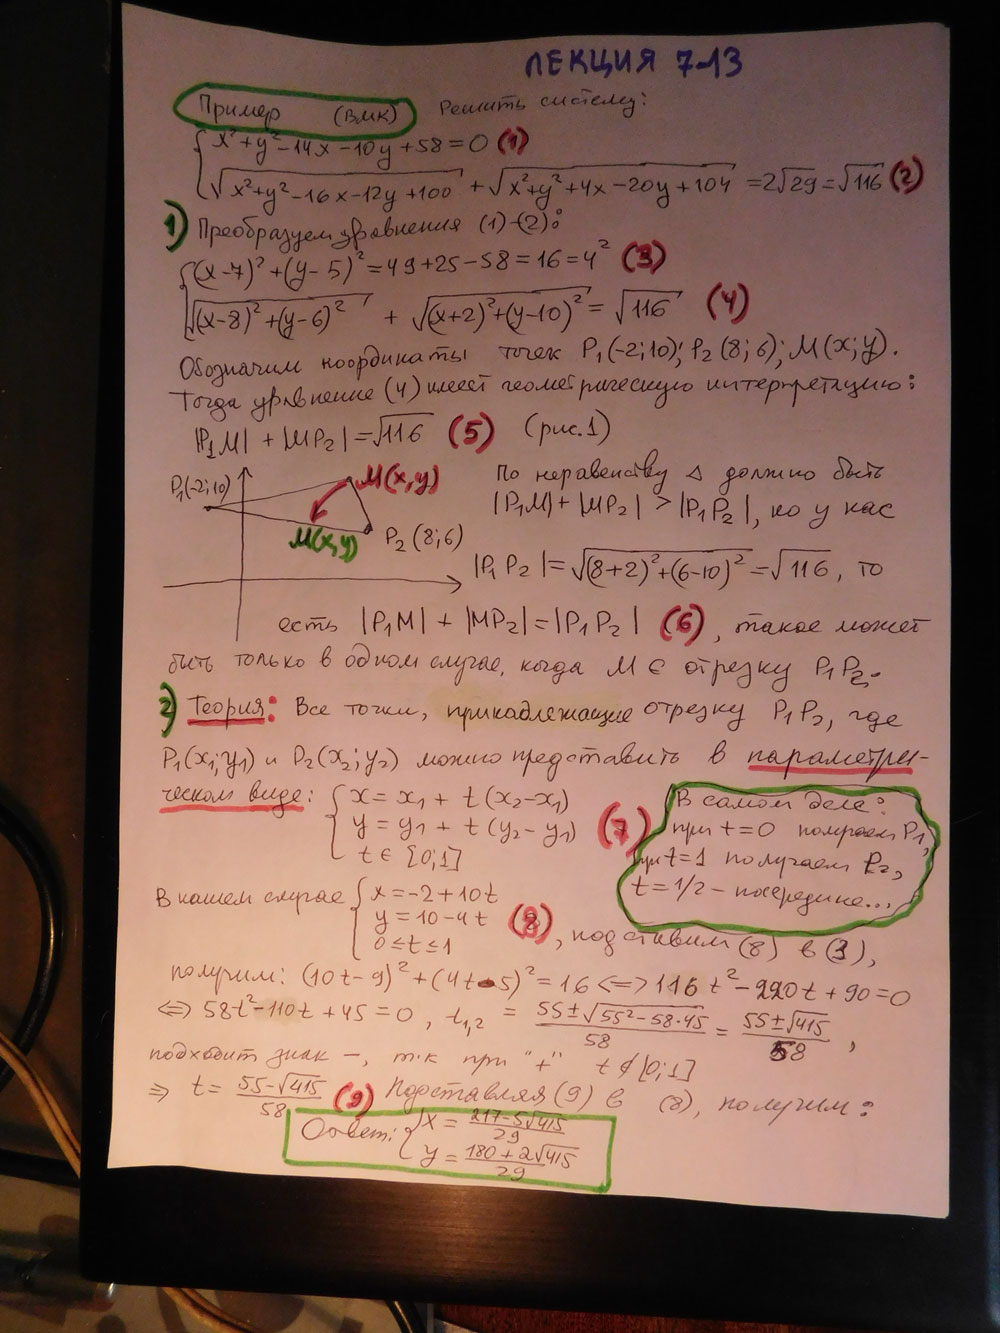 ЛЕКЦИЯ 7-13
Пример (ВМК) Решить систему:
{ x²+y²-14x-10y+58=0 (1)
√(x²+y²-16x-12y+100) + √(x²+y²+4x-20y+104) = 2√29 = √116 (2)
1) Преобразуем уравнения (1)-(2):
{ (x-7)²+(y-5)²=49+25-58=16=4² (3)
√((x-8)²+(y-6)²) + √((x+2)²+(y-10)²) = √116 (4)
Обозначим координаты точек P₁(-2;10); P₂(8;6); M(x;y).
Тогда уравнение (4) имеет геометрическую интерпретацию:
|P₁M| + |MP₂| = √116 (5) (рис.1)
P₁(-2;10)
M(x,y)
M(x,y)
P₂(8;6)
По неравенству Δ должно быть
|P₁M|+|MP₂| > |P₁P₂|, но у нас
|P₁P₂| = √((8+2)²+(6-10)²) = √116, то
есть |P₁M| + |MP₂| = |P₁P₂| (6), такое может
быть только в одном случае, когда M ∈ отрезку P₁P₂.
2) Теория: Все точки, принадлежащие отрезку P₁P₂, где
P₁(x₁;y₁) и P₂(x₂;y₂) можно представить в параметри-
ческом виде: { x = x₁ + t(x₂-x₁)
y = y₁ + t(y₂-y₁) (7)
t ∈ [0;1]
В самом деле:
при t=0 получаем P₁,
при t=1 получаем P₂,
t=1/2 - посередине...
В нашем случае { x=-2+10t
y=10-4t (8)
0≤t≤1
, подставим (8) в (3),
получим: (10t-9)²+(4t-5)²=16 <=> 116t²-220t+90=0
<=> 58t²-110t+45=0, t₁,₂ = (55±√(55²-58·45))/58 = (55±√415)/58,
подходит знак -, т.к при "+" t ∉ [0;1]
=> t = (55-√415)/58 (9) Подставляя (9) в (8), получим:
Ответ: { x = (217-5√415)/29
y = (180+2√415)/29